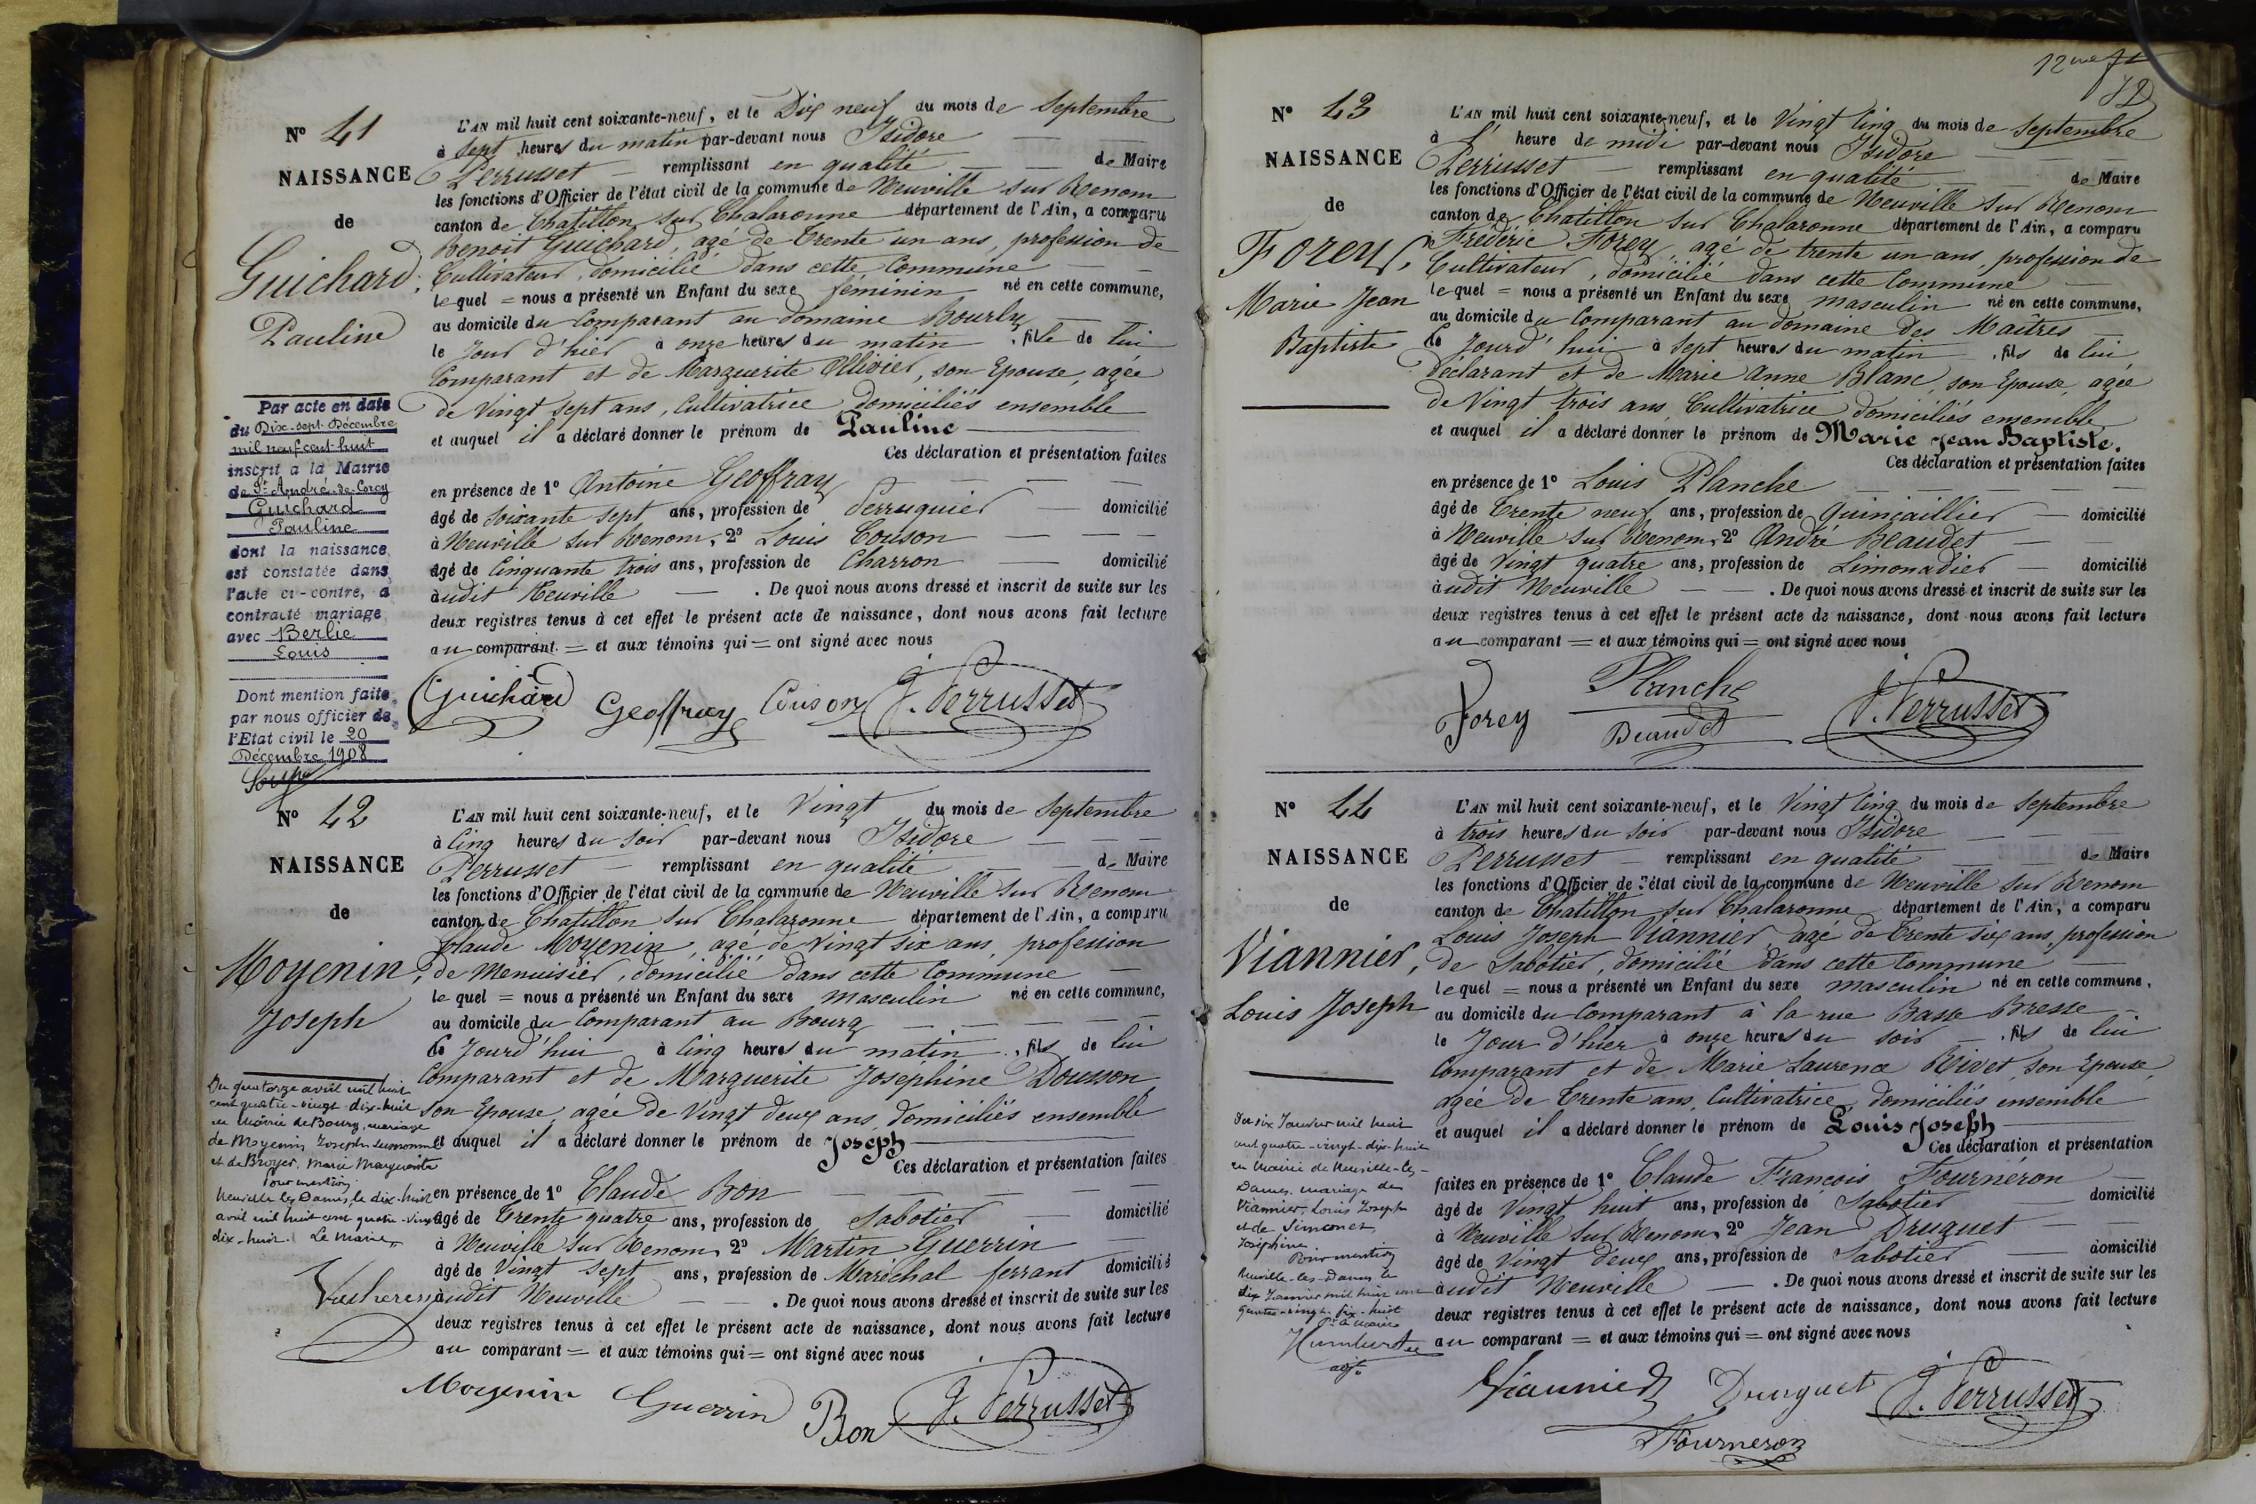 N° 41
NAISSANCE
de
Guichard,
Pauline
L'AN mil huit cent soixante-neuf, et le Dix neuf du mois de Septembre
à Sept heures du matin par-devant nous Isidore
Perrusset remplissant en qualité de Maire
les fonctions d'Officier de l'état civil de la commune de Neuville sur Renom
canton de Chatillon sur Chalaronne département de l'Ain, a comparu
Benoit Guichard, agé de Trente un ans, profession de
Cultivateur, domicilié dans cette Commune
lequel = nous a présenté un Enfant du sexe féminin né en cette commune,
au domicile du Comparant au domaine Bourlu
le Jour d'hier à onze heures du matin, fille de lui
Comparant et de Marguerite Ollivier, son Epouse, agée
de Vingt Sept ans, Cultivatrice domiciliés ensemble
et auquel il a déclaré donner le prénom de Pauline
Ces déclaration et présentation faites
en présence de 1° Antoine Geoffray
âgé de soixante sept ans, profession de Perruquier domicilié
à Neuville sur Renom, 2° Louis Couson
âgé de Cinquante trois ans, profession de Charron domicilié
àudit Neuville . De quoi nous avons dressé et inscrit de suite sur les
deux registres tenus à cet effet le présent acte de naissance, dont nous avons fait lecture
au comparant = et aux témoins qui = ont signé avec nous
Guichard Geoffray Couson J. Perrusset
Par acte en date
du Dix-sept Décembre
mil neuf cent huit
inscrit à la Mairie
de St André-de-Corcy
Guichard
Pauline
dont la naissance
est constatée dans
l'acte ci-contre, a
contracté mariage
avec Berlie
Louis
Dont mention faite
par nous officier de
l'Etat civil le 20
Décembre 1908
N° 42
NAISSANCE
de
Moyenin,
Joseph
L'AN mil huit cent soixante-neuf, et le Vingt du mois de Septembre
à Cinq heures du soir par-devant nous Isidore
Perrusset remplissant en qualité de Maire
les fonctions d'Officier de l'état civil de la commune de Neuville sur Renom
canton de Chatillon sur Chalaronne département de l'Ain, a comparu
Claude Moyenin, agé de Vingt six ans, profession
de Menuisier, domicilié dans cette Commune
lequel = nous a présenté un Enfant du sexe masculin né en cette commune,
au domicile du Comparant au Bourg
le Jourd'hui à Cinq heures du matin, fils de lui
Comparant et de Marguerite Josephine Dousson
son Epouse, agée de Vingt deux ans, domiciliés ensemble
et auquel il a déclaré donner le prénom de Joseph
Ces déclaration et présentation faites
en présence de 1° Claude Bon
âgé de Trente quatre ans, profession de Sabotier domicilié
à Neuville sur Renom, 2° Martin Guerrin
âgé de Vingt Sept ans, profession de Maréchal ferrant domicilié
àudit Neuville . De quoi nous avons dressé et inscrit de suite sur les
deux registres tenus à cet effet le présent acte de naissance, dont nous avons fait lecture
au comparant = et aux témoins qui = ont signé avec nous
Moyenin Guerrin Bon J. Perrusset
Du quatorze avril mil huit
cent quatre-vingt-dix-huit
en Mairie de Bourg, mariage
de Moyenin Joseph susnommé
et de Broyer, Marie Marguerite
Pour mention
Neuville les Dames, le dix-huit
avril mil huit cent quatre-vingt
dix-huit. Le Maire,
12
N° 43
NAISSANCE
de
Forey,
Marie Jean
Baptiste
L'AN mil huit cent soixante-neuf, et le Vingt Cinq du mois de Septembre
à l' heure de midi par-devant nous Isidore
Perrusset remplissant en qualité de Maire
les fonctions d'Officier de l'état civil de la commune de Neuville sur Renom
canton de Chatillon sur Chalaronne département de l'Ain, a comparu
Fréderic Forey, agé de trente un ans, profession de
Cultivateur, domicilié dans cette Commune
lequel = nous a présenté un Enfant du sexe masculin né en cette commune,
au domicile du Comparant au domaine des Maîtres
le Jourd'hui à Sept heures du matin, fils de lui
déclarant et de Marie Anne Blanc, son Epouse, agée
de Vingt trois ans, Cultivatrice domiciliés ensemble
et auquel il a déclaré donner le prénom de Marie Jean Baptiste.
Ces déclaration et présentation faites
en présence de 1° Louis Planche
âgé de Trente neuf ans, profession de Quincaillier domicilié
à Neuville sur Renom, 2° André Beaudet
âgé de Vingt quatre ans, profession de Limonadier domicilié
àudit Neuville . De quoi nous avons dressé et inscrit de suite sur les
deux registres tenus à cet effet le présent acte de naissance, dont nous avons fait lecture
au comparant = et aux témoins qui = ont signé avec nous
Forey Planche Beaudet J. Perrusset
N° 44
NAISSANCE
de
Viannier,
Louis Joseph
L'AN mil huit cent soixante-neuf, et le Vingt Cinq du mois de Septembre
à trois heures du soir par-devant nous Isidore
Perrusset remplissant en qualité de Maire
les fonctions d'Officier de l'état civil de la commune de Neuville sur Renom
canton de Chatillon sur Chalaronne département de l'Ain, a comparu
Louis Joseph Viannier, agé de Trente six ans, profession
de Sabotier, domicilié dans cette Commune
lequel = nous a présenté un Enfant du sexe masculin né en cette commune,
au domicile du Comparant à la rue Basse Bresse
le Jour d'hier à onze heures du soir, fils de lui
Comparant et de Marie Laurence Rivet, son Epouse,
agée de Trente ans, Cultivatrice, domiciliés ensemble
et auquel il a déclaré donner le prénom de Louis Joseph
Ces déclaration et présentation
faites en présence de 1° Claude François Fourneron
âgé de Vingt huit ans, profession de Sabotier domicilié
à Neuville sur Renom, 2° Jean Druguet
âgé de Vingt deux ans, profession de Sabotier domicilié
àudit Neuville . De quoi nous avons dressé et inscrit de suite sur les
deux registres tenus à cet effet le présent acte de naissance, dont nous avons fait lecture
au comparant = et aux témoins qui = ont signé avec nous
Viannier Druguet J. Perrusset
Fourneron
Du six Janvier mil huit
cent quatre-vingt-dix-huit
en Mairie de Neuville-les-
Dames, mariage de
Viannier, Louis Joseph
et de Simonet
Joséphine
Pour mention
Neuville-les-Dames le
dix Janvier mil huit cent
quatre-vingt-dix-huit
Pr le maire
Humbert
adjt